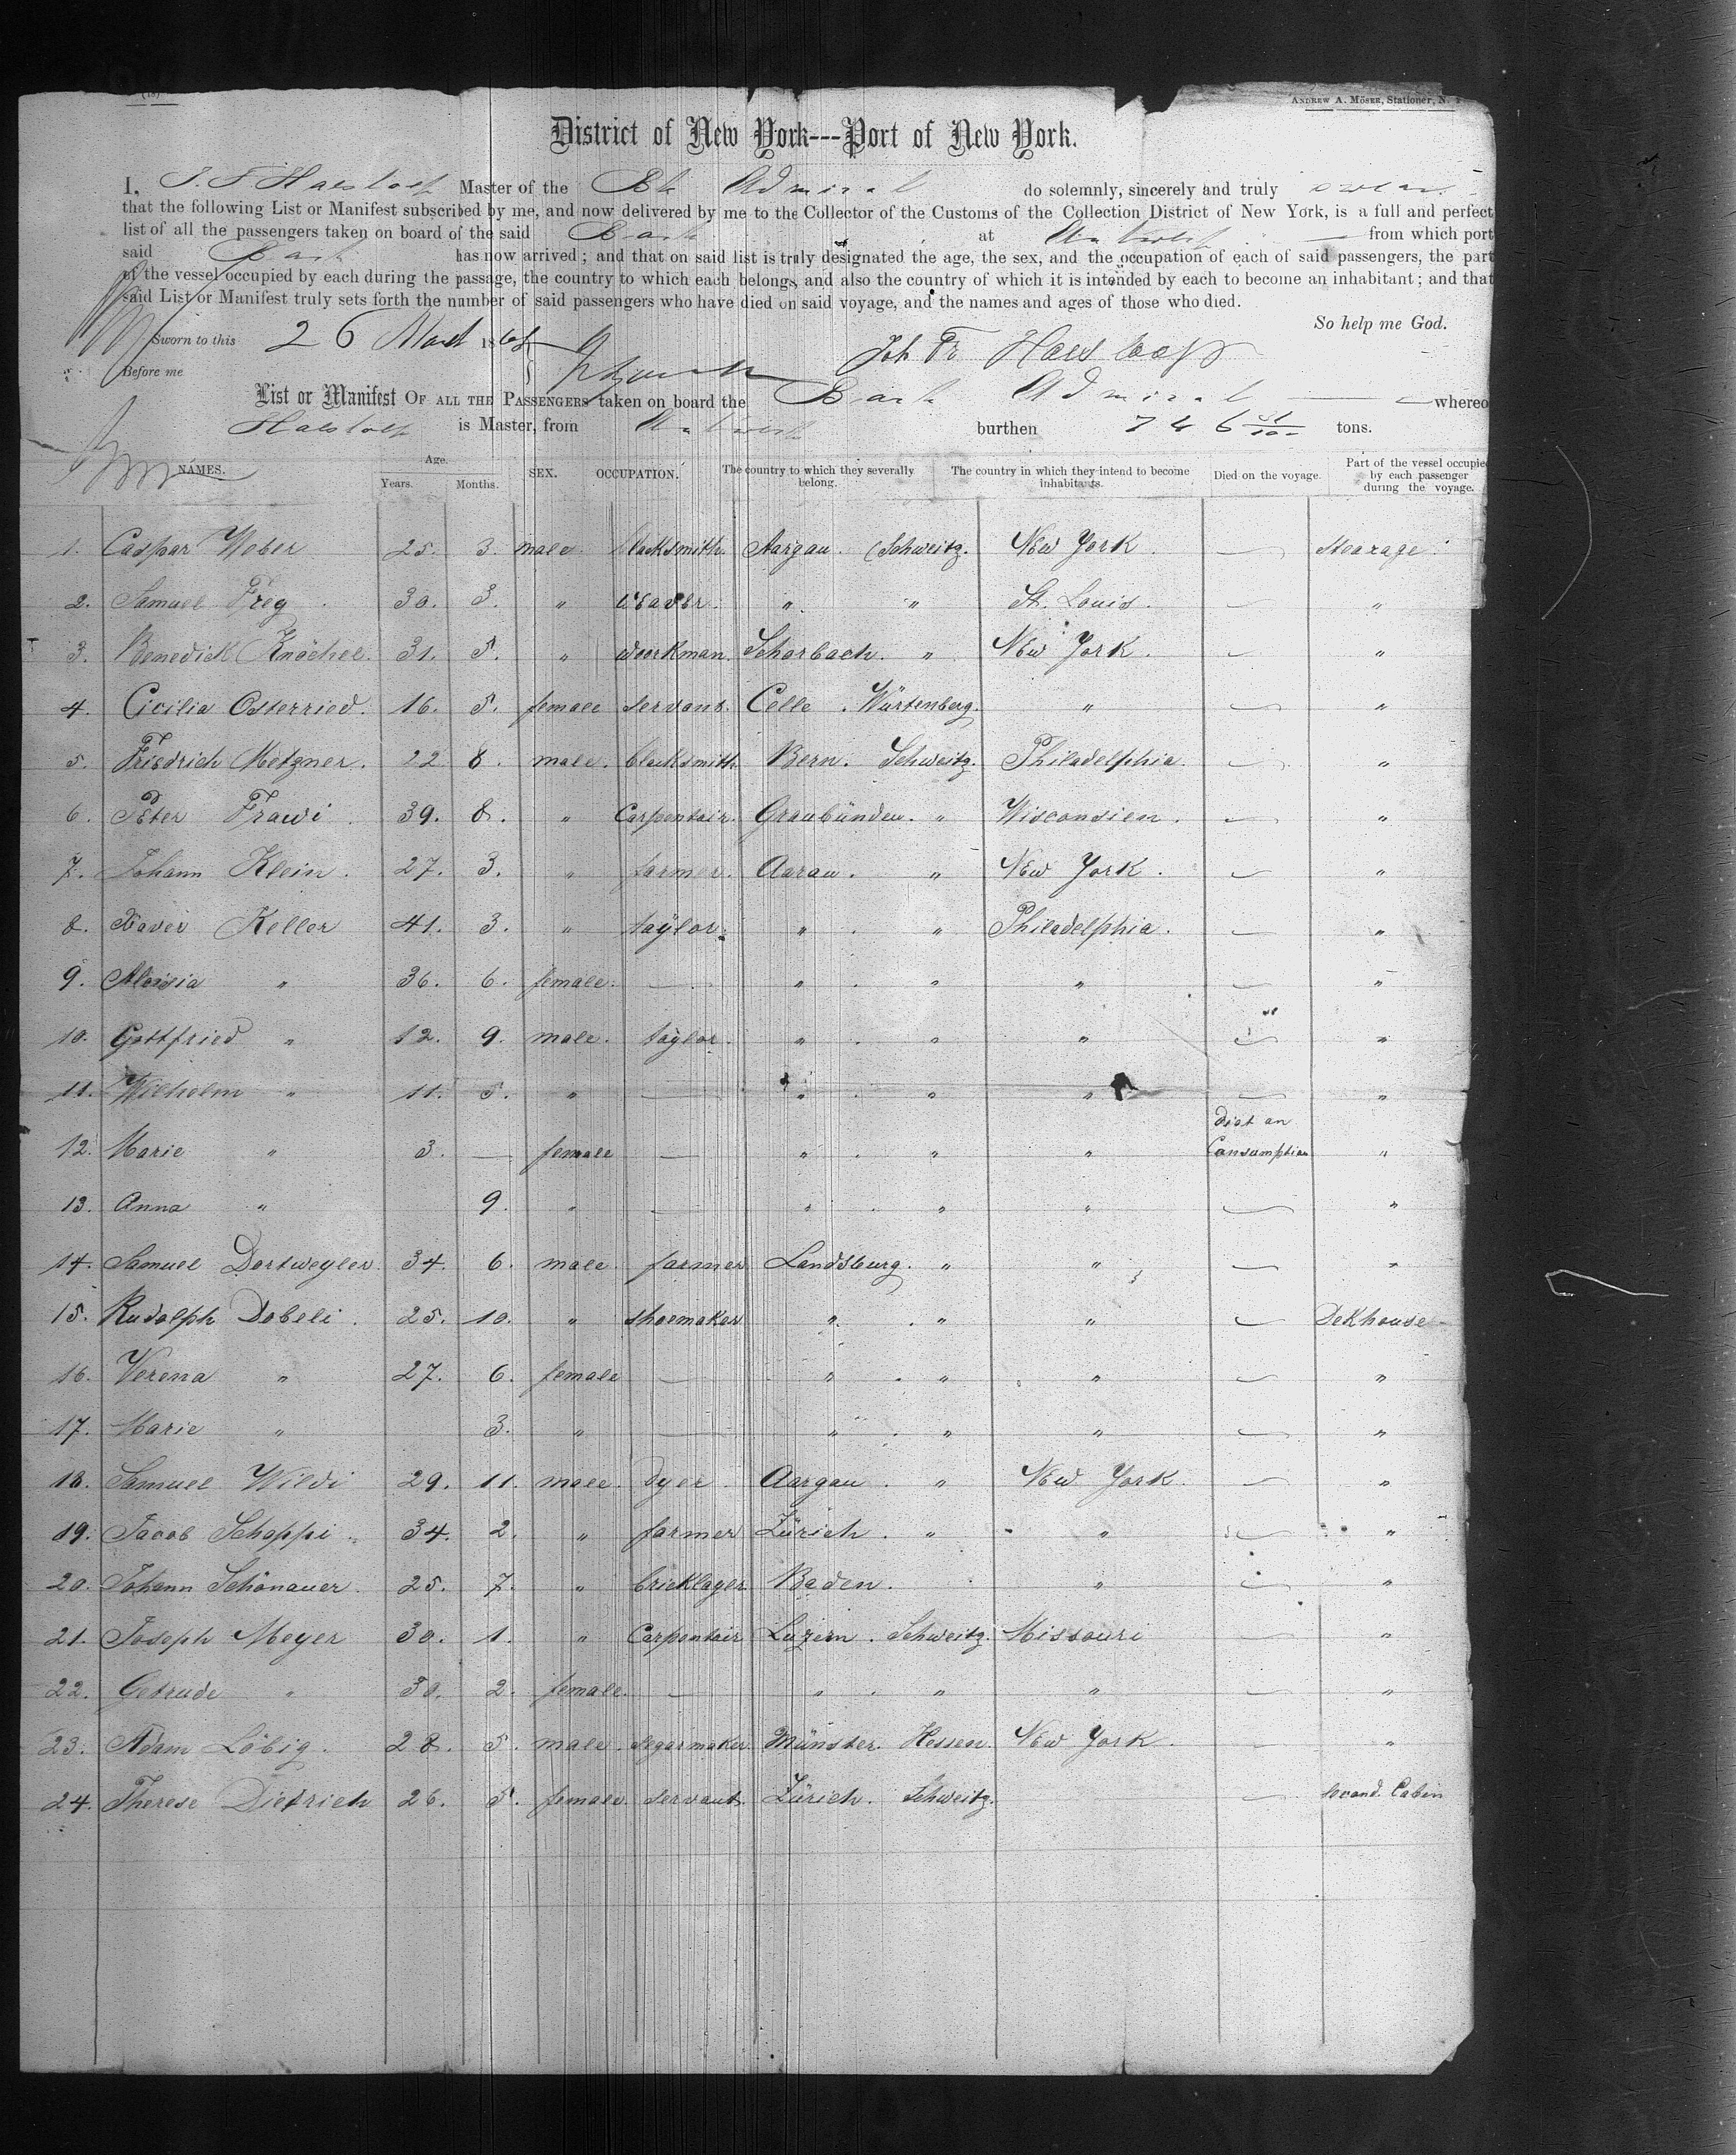 (18)
ANDREW A. MÖSER, Stationer, N. Y
District of New York---Port of New York.
I, Master of the Bk Admiral do solemnly, sincerely and truly swear
that the following List or Manifest subscribed by me, and now delivered by me to the Collector of the Customs of the Collection District of New York, is a full and perfect
list of all the passengers taken on board of the said Bark at from which port
said Bark has now arrived; and that on said list is truly designated the age, the sex, and the occupation of each of said passengers, the part
of the vessel occupied by each during the passage, the country to which each belongs, and also the country of which it is intended by each to become an inhabitant; and that
said List or Manifest truly sets forth the number of said passengers who have died on said voyage, and the names and ages of those who died.
So help me God.
Sworn to this 26 186 Joh Fr
Before me
List or Manifest OF ALL THE PASSENGERS taken on board the Bark Admiral whereo
is Master, from burthen 746 tons.
NAMES. Age. Years. Months. SEX. OCCUPATION. The country to which they severally belong. The country in which they intend to become inhabitants. Died on the voyage. Part of the vessel occupied by each passenger during the voyage.
1. Caspar Weber 25. 3. male. blacksmith. Aargau. (Schweitz. New York. — Stearage.
2. Samuel Freg. 30. 3. " weaver. " " St. Louis. — "
3. Benedick Knöchel. 31. 5. " woorkman. Schorbach. " New York. — "
4. Cicilia Osterried. 16. 5. female servant. Celle. Würtenberg. " — "
5. Friedrich Metzner. 22 8. male. blacksmith Bern. Schweitz. Philadelphia. — "
6. Peter Frawi. 39. 8. " Carpentair. Graubünden. " Wisconsien. — "
7. Johann Klein. 27. 3. " farmer. Aarau. " New York. — "
8. Xaver Keller 41. 3. " taylor. " . " Philadelphia. — "
9. Aloisia " 36. 6. female. — " . " " — "
10. Gottfried " 12. 9. male. taylor. " . " " — "
11. Wilhelm " 11. 5. " — " . " " — "
12. Marie " 3. — female — " . " " diet an Consumption "
13. Anna " 9. " — " . " " — "
14. Samuel Dortweyler. 34. 6. male. farmer Landsburg. " " — "
15. Rudolph Dobeli. 25. 10. " shoemaker " . " " — Dekhouse
16. Verena " 27. 6. female — " . " " — "
17. Marie " 3. " — " . " " — "
18. Samuel Wildi 29. 11. male. dyer Aargau. " New York. — "
19. Jacob Schappi. 34. 2. " farmer Zürich. " " — "
20. Johann Schönauer. 25. 7. " bricklager Baden. " — "
21. Joseph Meyer 30. 1. " Carpentair Luzern. Schweitz. Missouri — "
22. Getrude " 30. 2. female. — " . " " — "
23. Adam Löbig. 28. 5. male. segarmaker. Münster. Hessen. New York. — "
24. Therese Dietrich 26. 5. female. servant. Zürich. Schweitz. — second Cabin